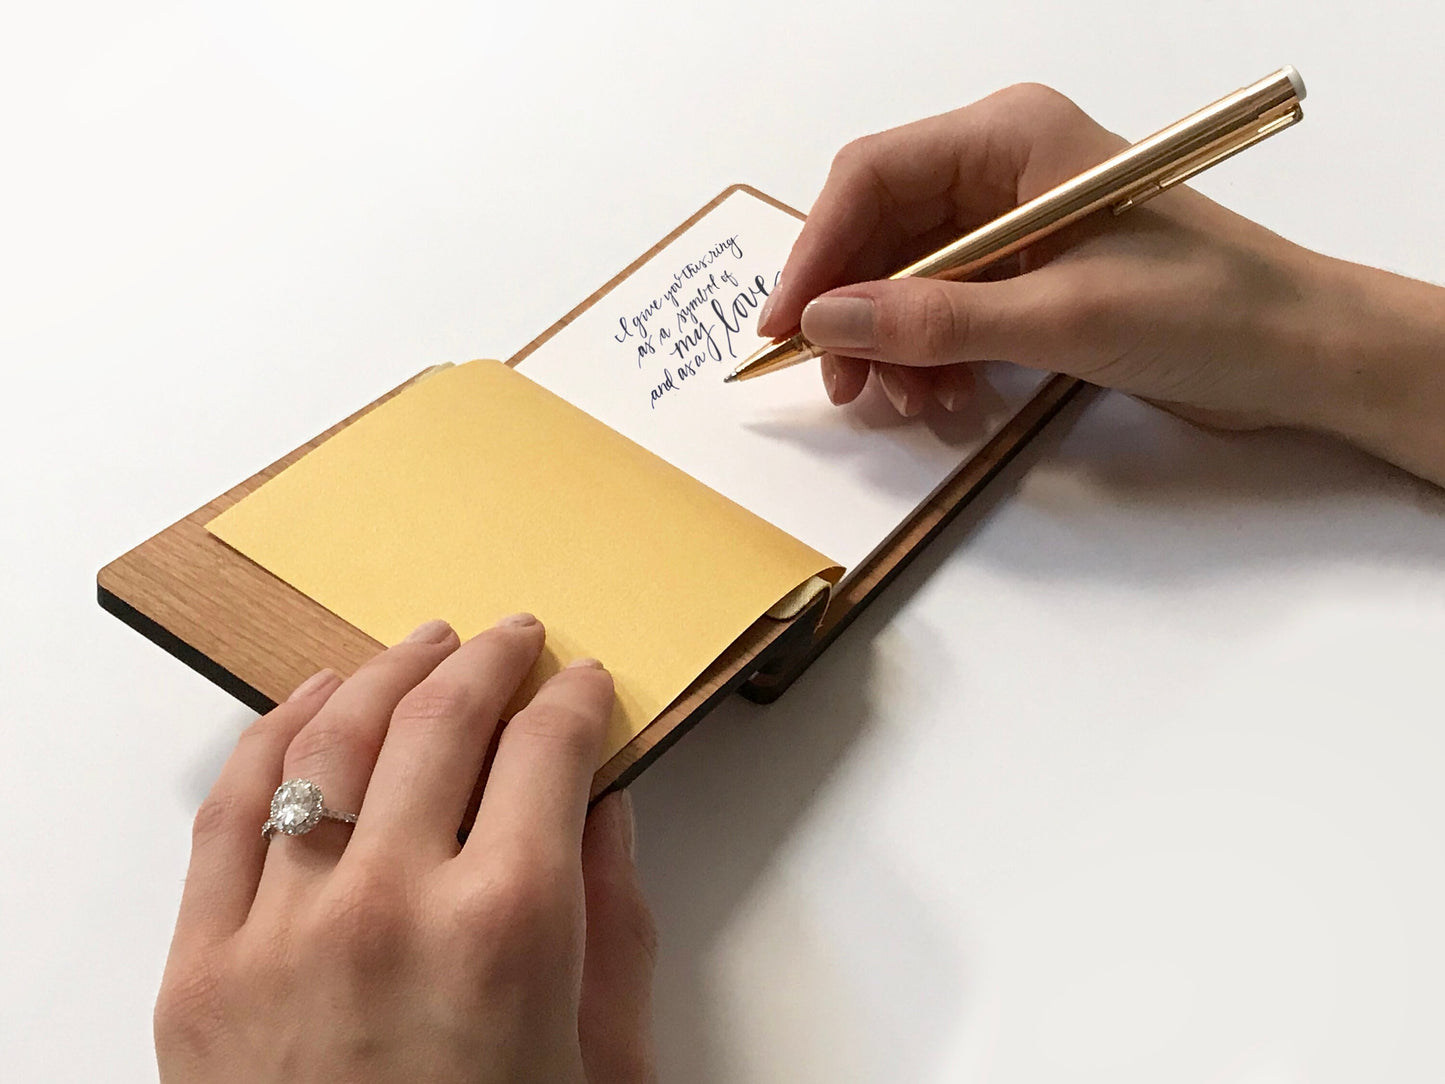 I give you this ring
as a symbol of
my love
and as a